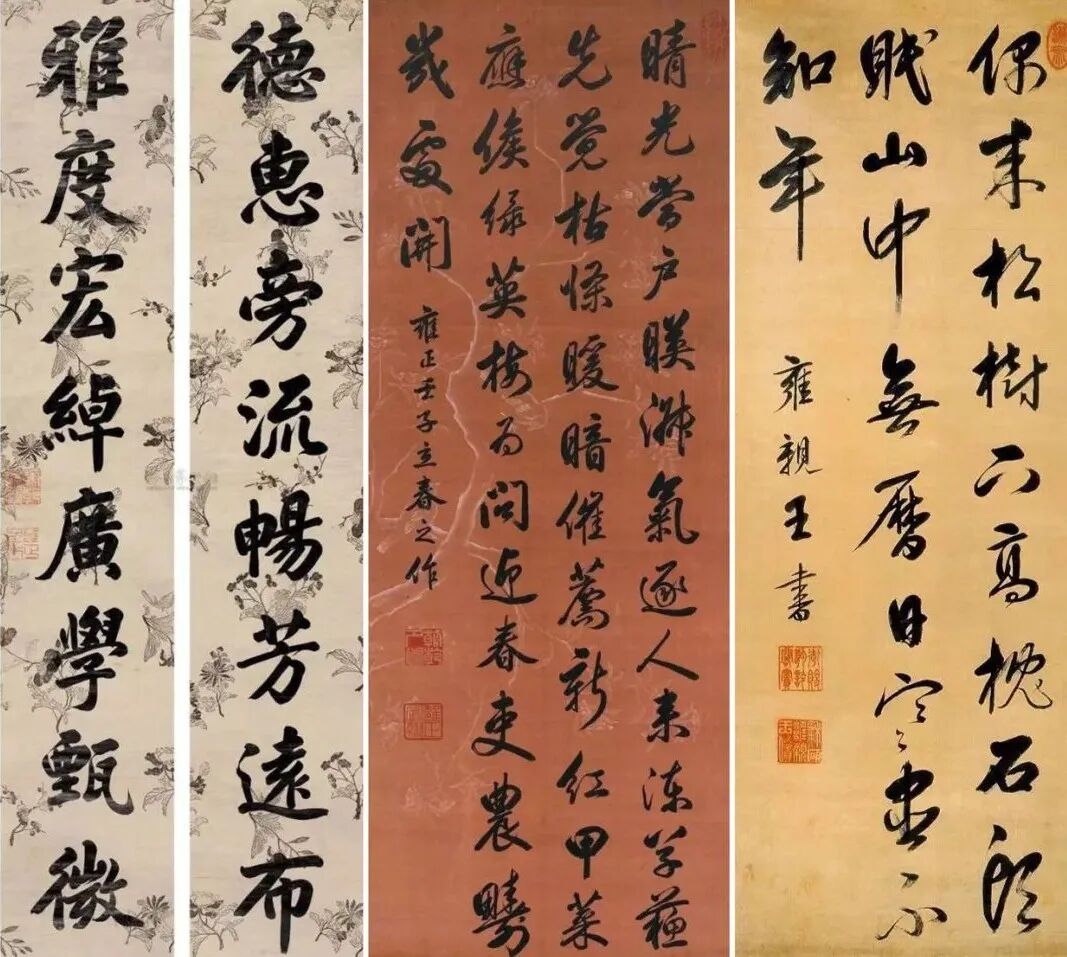 偶来松樹下高枕石頭
眠山中無曆日寒盡不
知年
雍親王書
晴光當户暎淑氣逐人来凍草蘇
先覺枯條暖暗催薦新紅甲菜
應候綠英梅為問迎春吏農疇
幾處開
雍正壬子立春之作
德恵旁流暢芳遠布
雅度宏綽廣學甄微